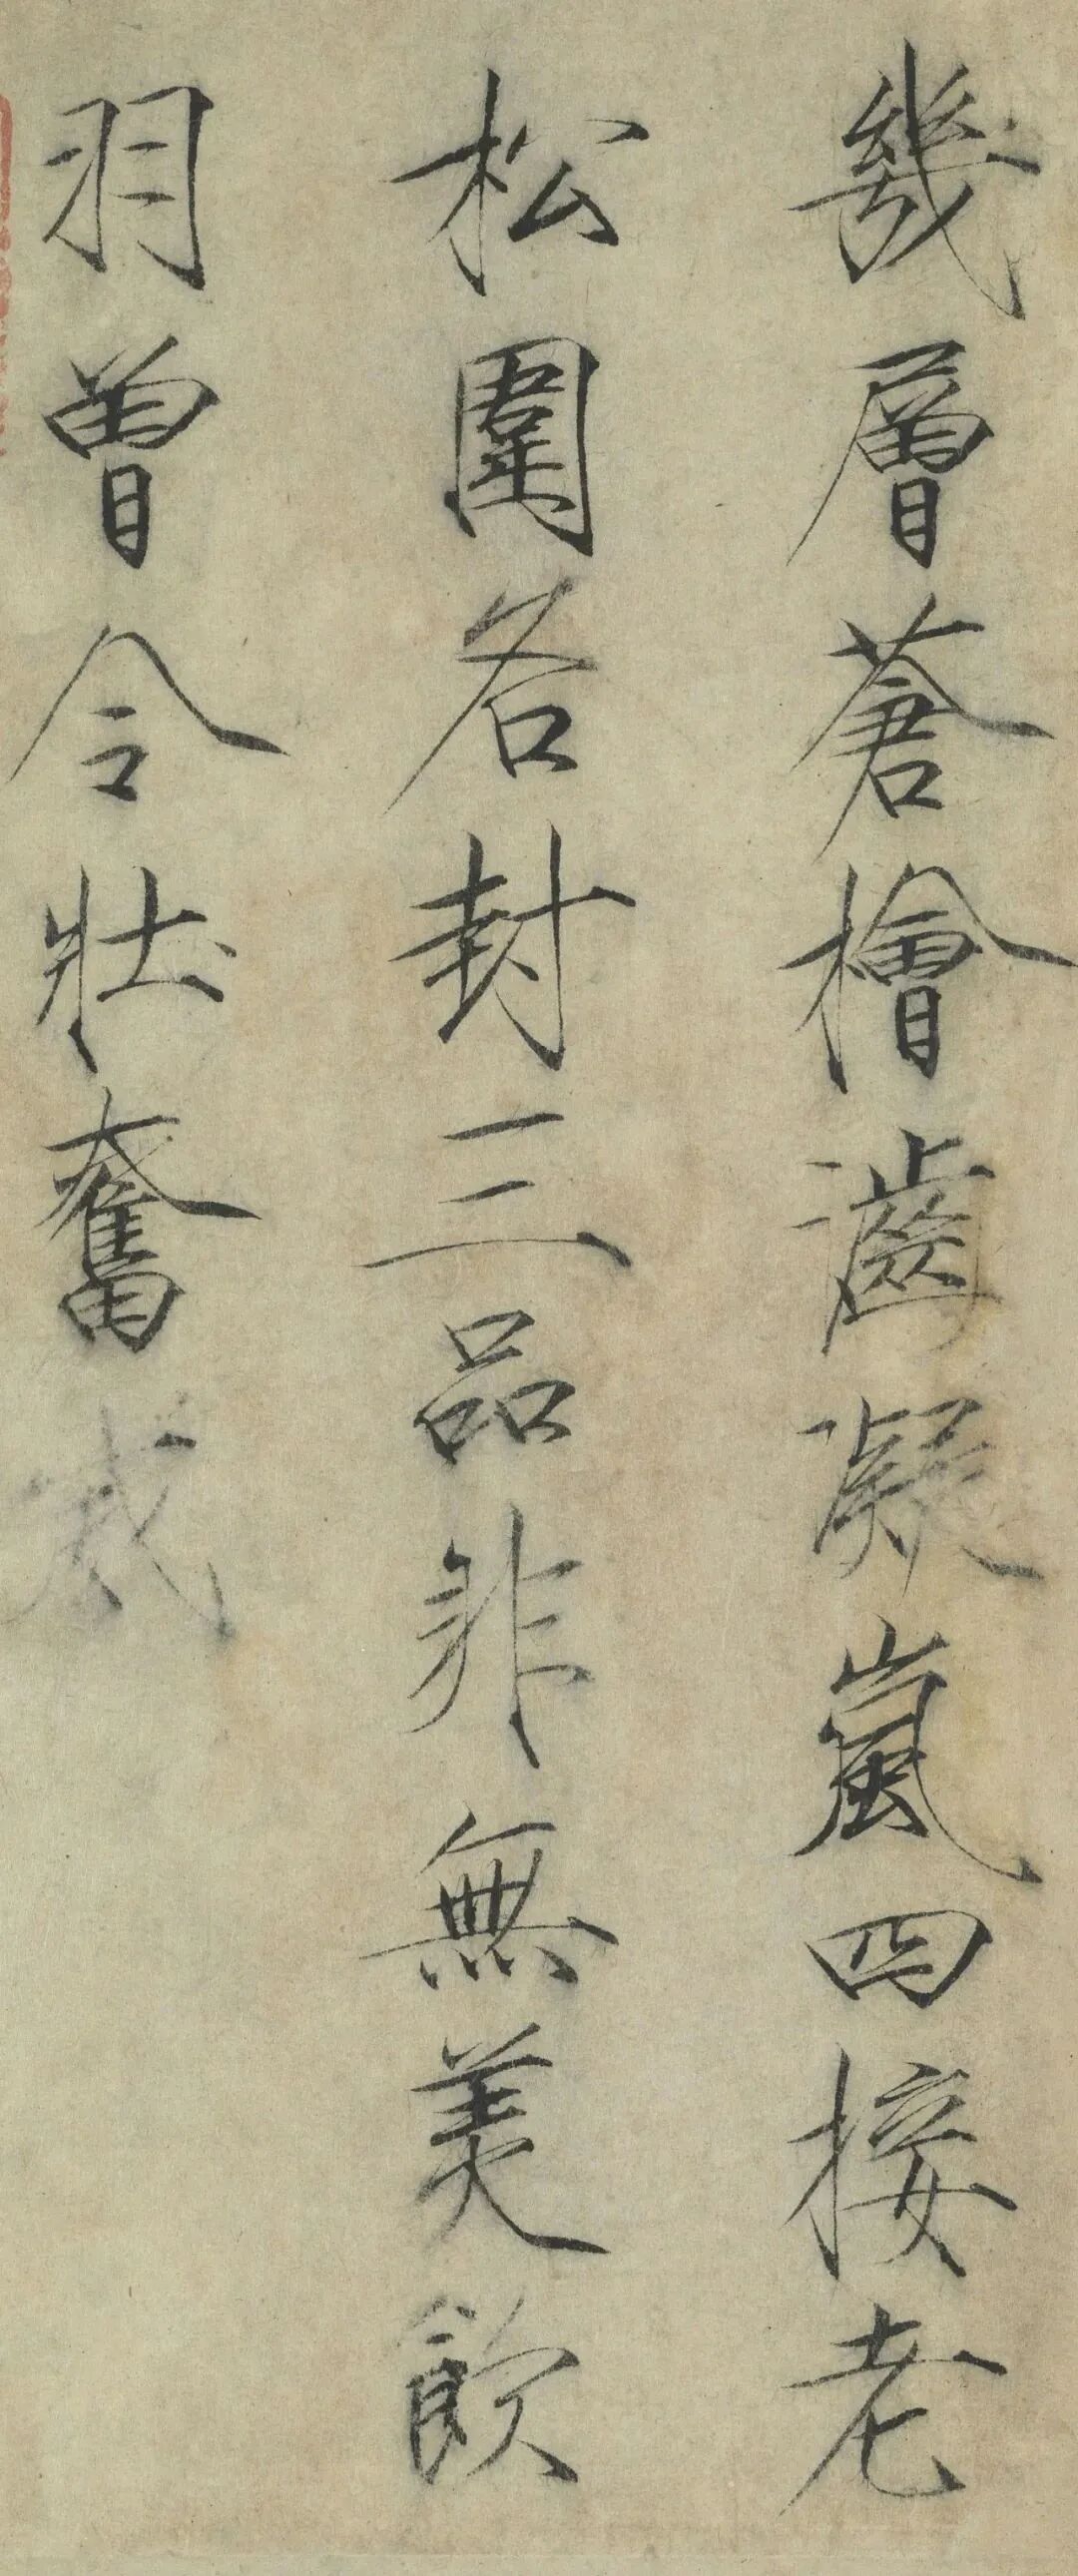 幾層蒼檜凝嵐四接老
松圍各封三品非無美飲
羽曾令壯奮威